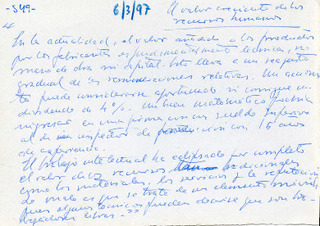 -549-
6/3/97
El valor creciente de los
recursos humanos
"
En la actualidad, el valor añadido a los productos
por los fabricantes es técnica, no
mano de obra ni capital. Esto lleva a un reajuste
gradual de las remuneraciones relativas. Un accionis
ta puede considerarse afortunado si consigue un
dividendo de 4%. Un buen matemático puede
ingresar en una primera con sueldo superior
al de un inspector de con 16 años
de experiencia.
El trabajo intelectual ha eclipsado por completo
el valor de los recursos tradicionales
como los materiales, los servicios y la reputación
de modo que se trata de un elemento móvil,
pues algunos técnicos pueden decirse que son tra-
bajadores libres."